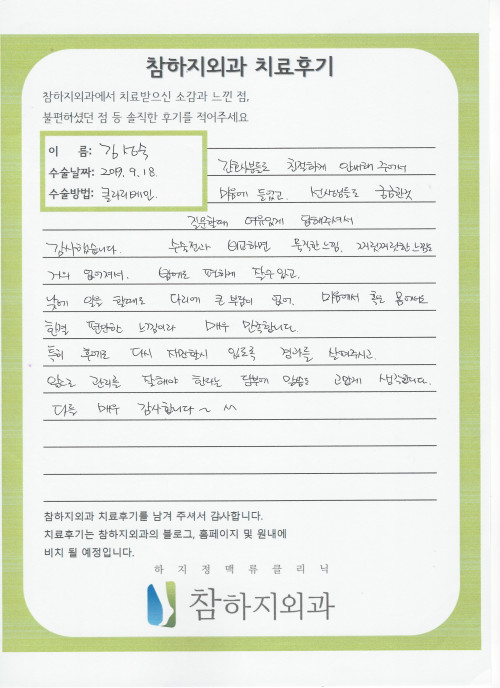 참하지외과 치료후기
참하지외과에서 치료받으신 소감과 느낀 점,
불편하셨던 점 등 솔직한 후기를 적어주세요
이 름: 김성숙
수술날짜: 2019. 9. 18.
수술방법: 클라리베인.
간호사님들도 친절하게 안내해 주어서
마음에 들었고. 선생님들도 궁금한것
질문할때 여유있게 답해주셔서
감사했습니다. 수술전과 비교하면 묵직한 느낌. 저릿저릿한 느낌도
거의 없어져서. 밤에도 편하게 잘수 있고.
낮에 일을 할때도 다리에 큰 부담이 없어. 마음에서 혹은 몸에서도
한결 편안한 느낌이라 매우 만족합니다.
특히 후에도 다시 재발할시 있도록 경과를 살펴주시고.
앞으로 관리를 잘해야 한다는 당부에 말씀도 고맙게 생각합니다.
다들 매우 감사합니다~ ^^
참하지외과 치료후기를 남겨 주셔서 감사합니다.
치료후기는 참하지외과의 블로그, 홈페이지 및 원내에
비치 될 예정입니다.
하지정맥류클리닉
참하지외과